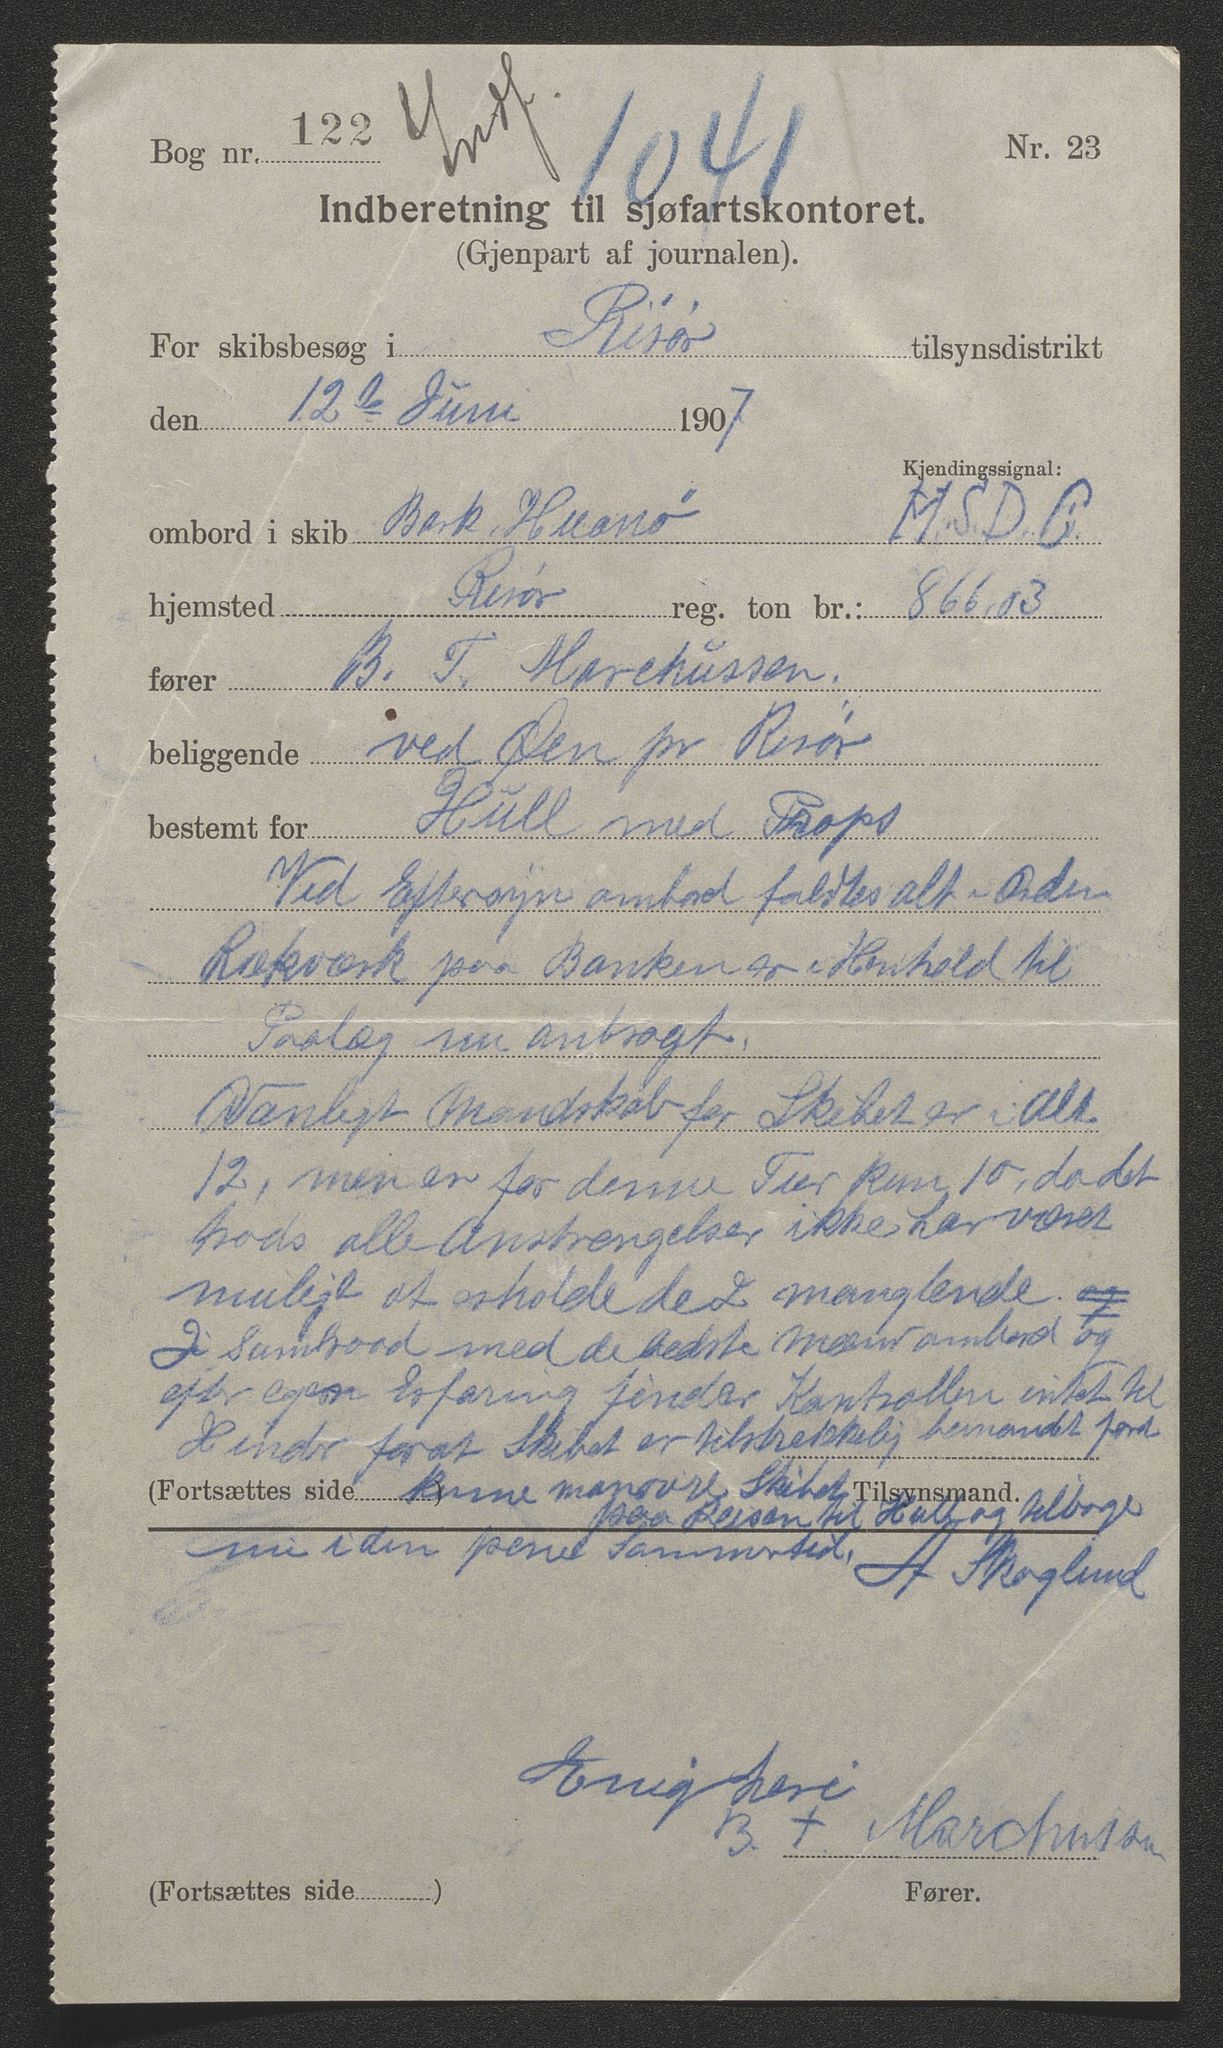 Bog nr. 122 Indf. 1041 Nr. 23
Indberetning til sjøfartskontoret.
(Gjenpart af journalen).
For skibsbesøg i Risør tilsynsdistrikt
den 12te Juni 1907
Kjendingssignal:
ombord i skib Bark. M.S.D.C.
hjemsted Risør reg. ton br.: 866,03
fører B. T. Marchussen.
beliggende ved Øen pr Risør
bestemt for Hull med Props
Ved Eftersyn ombord faldtes alt i Orden
Rækværk paa Banken er i Henhold til
Paalæg nu anbragt.
Vanligt Mandskab for Skibet er i Alt
12, men er for denne Tur kun 10, da det
trods alle Anstrengelser ikke har været
muligt at erholde de 2 manglende. og
I Samraad med de bedste Mænd ombord og
efter egen Erfaring finder Kontrollen intet til
Hinder for at Skibet er tilstrekkelig bemandet for at
(Fortsættes side ) kunne manovre Skibet Tilsynsmand.
paa Reisen til Hull og tilbage
nu i den pene Sommertid. A Skoglund
Enig heri
B. T. Marchussen
(Fortsættes side ) Fører.